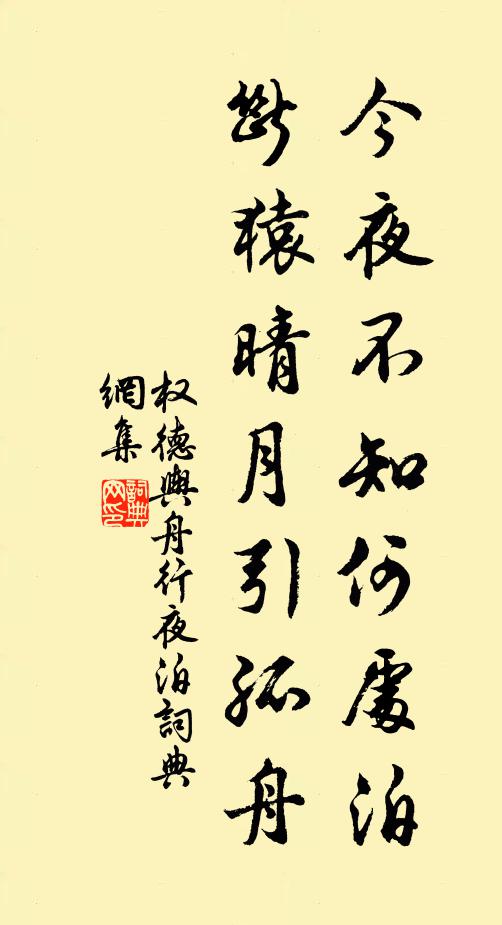 今夜不知何處泊
斷猿晴月引孤舟
权德輿舟行夜泊詞典
網集
詞典網印